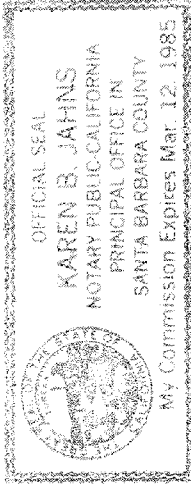 OFFICIAL SEAL
KAREN B. JAHNS
NOTARY PUBLIC-CALIFORNIA
PRINCIPAL OFFICE IN
SANTA BARBARA COUNTY
My Commission Expires Mar. 12, 1985